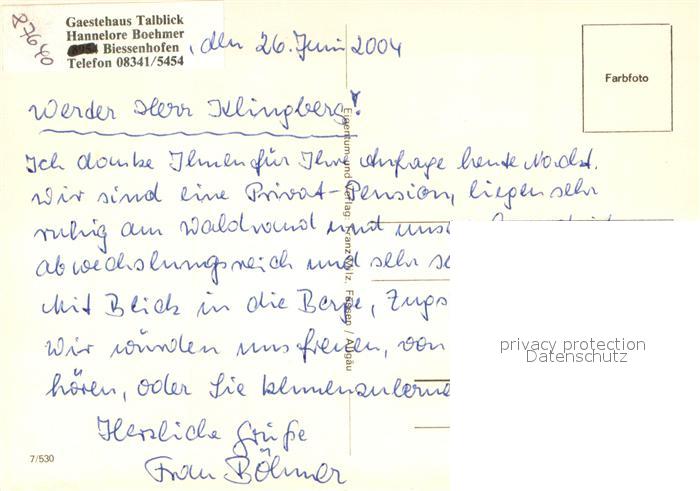 Gaestehaus Talblick
Hannelore Boehmer
Biessenhofen
Telefon 08341/5454
87640
, den 26. Juni 2004
Farbfoto
Werder Herr Klingberg!
Ich danke Ihnen für Ihre Anfrage heute Nacht.
Wir sind eine Privat-Pension, liegen sehr
ruhig am Waldrand und
abwechslungsreich und sehr
Mit Blick in die Berge, Zugs
Wir würden uns freuen, von
hören, oder Sie kennenzulerne
Herzliche Grüße
Frau Böhmer
Eigentum und Verlag: Franz Milz, Füssen / Allgäu
7/530
privacy protection
Datenschutz